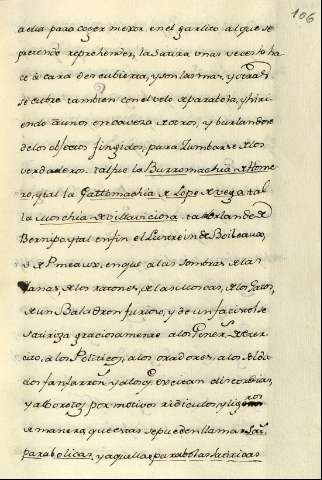 106
acia para coger mexor en el garlito al que se
pretende reprehender, la Satira unas veces lo ha
ce à cara descubierta, y son las mas, y otras
se cubre tambien con el velo parabola, y hiri
endo unos en caveza otros, y burlandose
de los objetos fingidos, para
verdaderos. tal fue la Burromachia Home
ro, qtal la Gattomachia Lope vega tal
la Villaviciosa tal Orlando
Berni, y tal en fin el Lutrein de Boileaux,
en que a las sombras las
Ranas, los ratones, las moscas, los Gatos,
un Baladron furioso, y de un facistol se
satiriza graciosamente a los
cito, a los Politicos, a los oradores, a los Solda
dos fanfarrones y a los q excitan discordias,
y alborotos por motivos ridiculos, y
manera que estas se pueden llamar
parabolicas, y aquellas parabolas satiricas